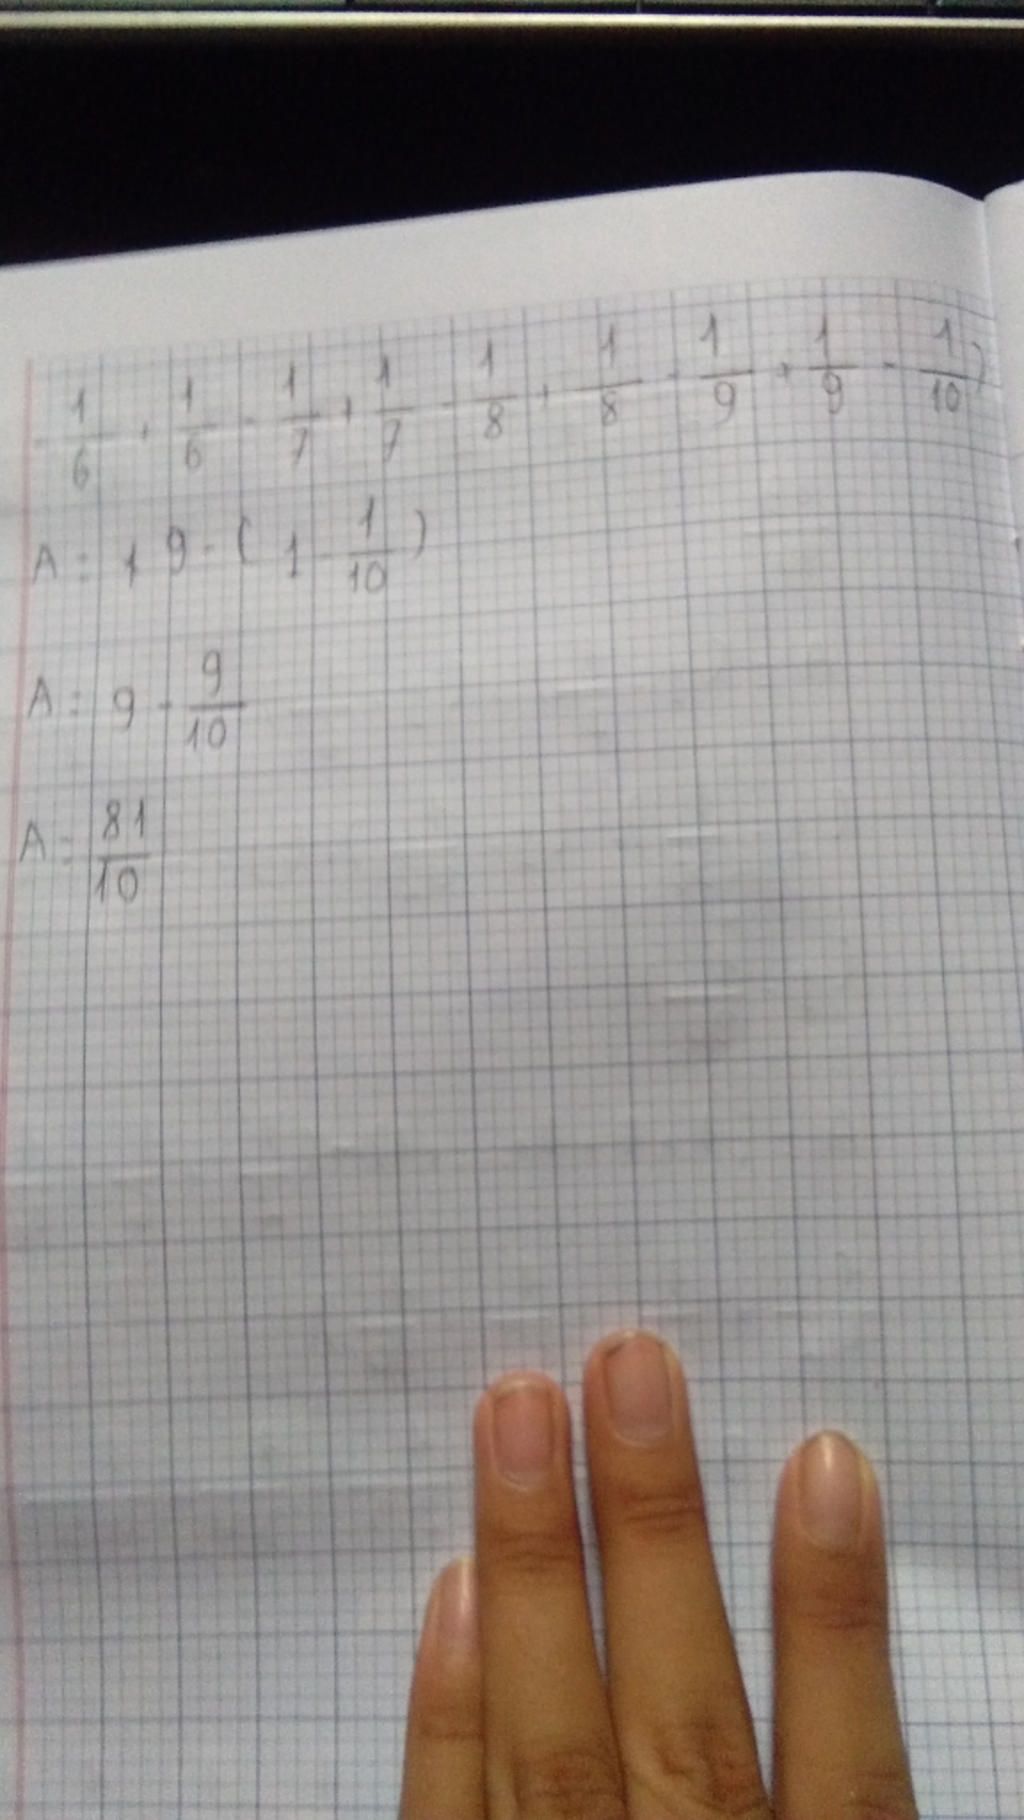 - 1/6 + 1/6 - 1/7 + 1/7 - 1/8 + 1/8 - 1/9 + 1/9 - 1/10 )
A = 1 9 - ( 1 - 1/10 )
A = 9 - 9/10
A = 81/10